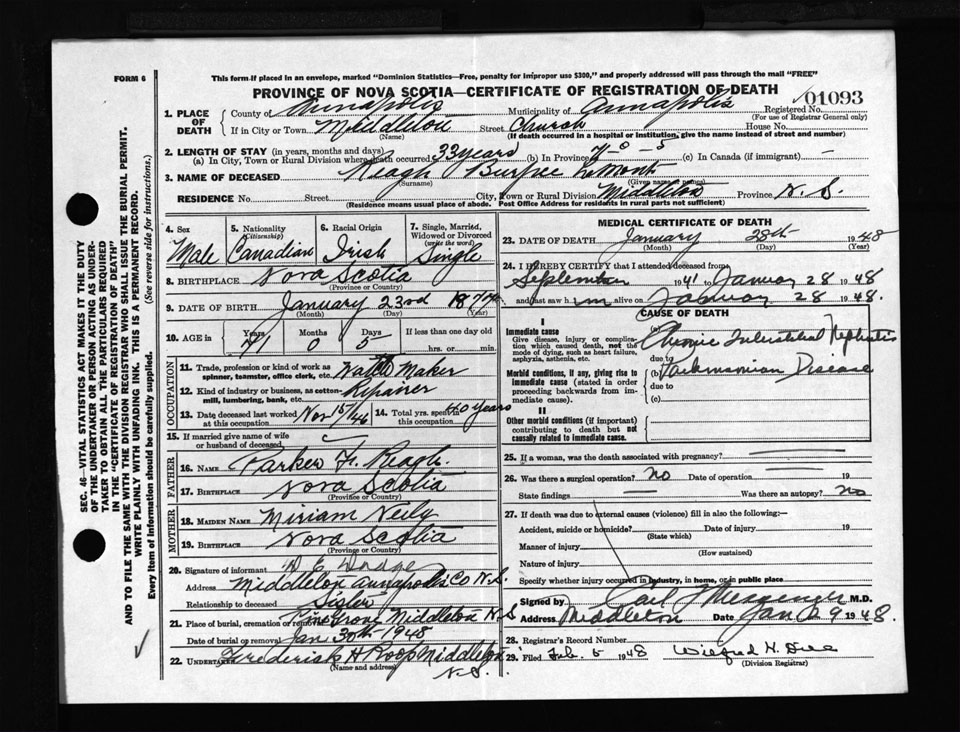 FORM 6
This form if placed in an envelope, marked "Dominion Statistics—Free, penalty for improper use $300," and properly addressed will pass through the mail "FREE"
PROVINCE OF NOVA SCOTIA—CERTIFICATE OF REGISTRATION OF DEATH
01093
1. PLACE OF DEATH
County of Annapolis Municipality of Annapolis Registered No.
(For use of Registrar General only)
If in City or Town Middleton Street Church House No.
(Name) (If death occurred in a hospital or institution, give the name instead of street and number)
2. LENGTH OF STAY (in years, months and days)
(a) In City, Town or Rural Division where death occurred 33 years (b) In Province (c) In Canada (if immigrant) —
3. NAME OF DECEASED Reagh Burpee LeMont
(Surname)
RESIDENCE No. Street City, Town or Rural Division Middleton Province N.S.
(Residence means usual place of abode. Post Office Address for residents in rural parts not sufficient)
4. Sex Male
5. Nationality (Citizenship) Canadian
6. Racial Origin Irish
7. Single, Married, Widowed or Divorced (write the word) Single
8. BIRTHPLACE Nova Scotia
(Province or Country)
9. DATE OF BIRTH January 23rd 187
(Month) (Day) (Year)
10. AGE in Years 71 Months 0 Days 5 If less than one day old
hrs. or min.
OCCUPATION
11. Trade, profession or kind of work as spinner, teamster, office clerk, etc. Watch Maker
12. Kind of industry or business, as cotton-mill, lumbering, bank, etc. Repairer
13. Date deceased last worked at this occupation Nov 15/46
14. Total yrs. spent in this occupation 40 years
15. If married give name of wife or husband of deceased
FATHER
16. NAME Parker F. Reagh
17. BIRTHPLACE Nova Scotia
(Province or Country)
MOTHER
18. MAIDEN NAME Miriam Neily
19. BIRTHPLACE Nova Scotia
(Province or Country)
20. Signature of informant D E Dodge
Address Middleton Annapolis Co N.S.
Relationship to deceased Sister
21. Place of burial, cremation or removal Pine Grove Middleton N.S
Date of burial or removal Jan 30th 1948
22. Undertaker Frederick H Roop Middleton
(Name and address) N.S.
MEDICAL CERTIFICATE OF DEATH
23. DATE OF DEATH January 28th 1948
(Month) (Day) (Year)
24. I HEREBY CERTIFY that I attended deceased from
September 1941 to January 28 1948
and last saw him alive on January 28 1948.
CAUSE OF DEATH
I
Immediate cause
Give disease, injury or complication which caused death, not the mode of dying, such as heart failure, asphyxia, asthenia, etc.
(a) Chronic Interstitial Nephritis
due to
Morbid conditions, if any, giving rise to immediate cause (stated in order proceeding backwards from immediate cause)
(b) Parkinsonian Disease
due to
(c)
II
Other morbid conditions (if important) contributing to death but not causally related to immediate cause.
25. If a woman, was the death associated with pregnancy?
26. Was there a surgical operation? No Date of operation 19
State findings — Was there an autopsy? No
27. If death was due to external causes (violence) fill in also the following:—
Accident, suicide or homicide? Date of injury 19
(State which)
Manner of injury
(How sustained)
Nature of injury
Specify whether injury occurred in industry, in home, or in public place
Signed by Carl J Messenger M.D.
Address Middleton Date Jan 29 1948.
28. Registrar's Record Number
29. Filed Feb. 5 1948
(Division Registrar)
SEC. 46—VITAL STATISTICS ACT MAKES IT THE DUTY
OF THE UNDERTAKER OR PERSON ACTING AS UNDERTAKER TO OBTAIN ALL THE PARTICULARS REQUIRED
IN THE "CERTIFICATE OF REGISTRATION OF DEATH"
AND TO FILE THE SAME WITH THE DIVISION REGISTRAR WHO SHALL ISSUE THE BURIAL PERMIT.
WRITE PLAINLY WITH UNFADING INK. THIS IS A PERMANENT RECORD.
Every item of information should be carefully supplied. (See reverse side for instructions.)